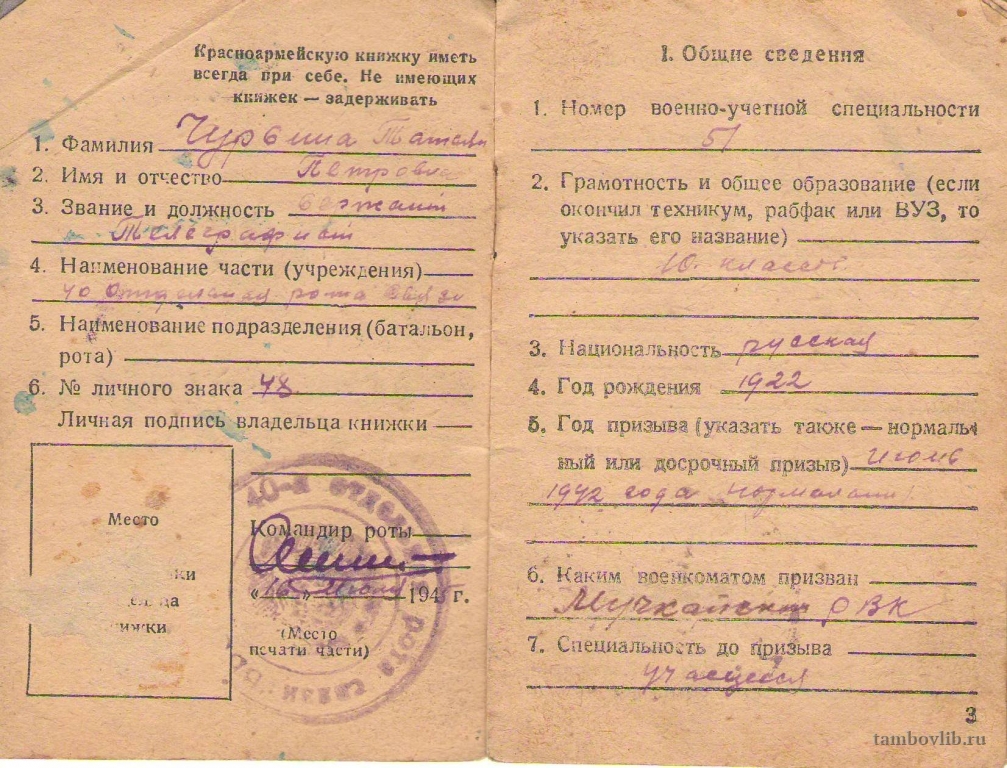 Красноармейскую книжку иметь
всегда при себе. Не имеющих
книжек — задерживать
1. Фамилия Татьяна
2. Имя и отчество Петровна
3. Звание и должность сержант
Телеграфист
4. Наименование части (учреждения)
40 Отдельная рота связи
5. Наименование подразделения (батальон,
рота)
6. № личного знака 48
Личная подпись владельца книжки
Место
ки
ца
нижки
40-я отдел рота связи
Командир роты
„16" Июля 1945 г.
(Место
печати части)
I. Общие сведения
1. Номер военно-учетной специальности
51
2. Грамотность и общее образование (если
окончил техникум, рабфак или ВУЗ, то
указать его название)
10. классов
3. Национальность русская
4. Год рождения 1922
5. Год призыва (указать также — нормаль-
ный или досрочный призыв)
1942 года
6. Каким военкоматом призван
Мучкапским РВК
7. Специальность до призыва
учащаяся
3
tambovlib.ru